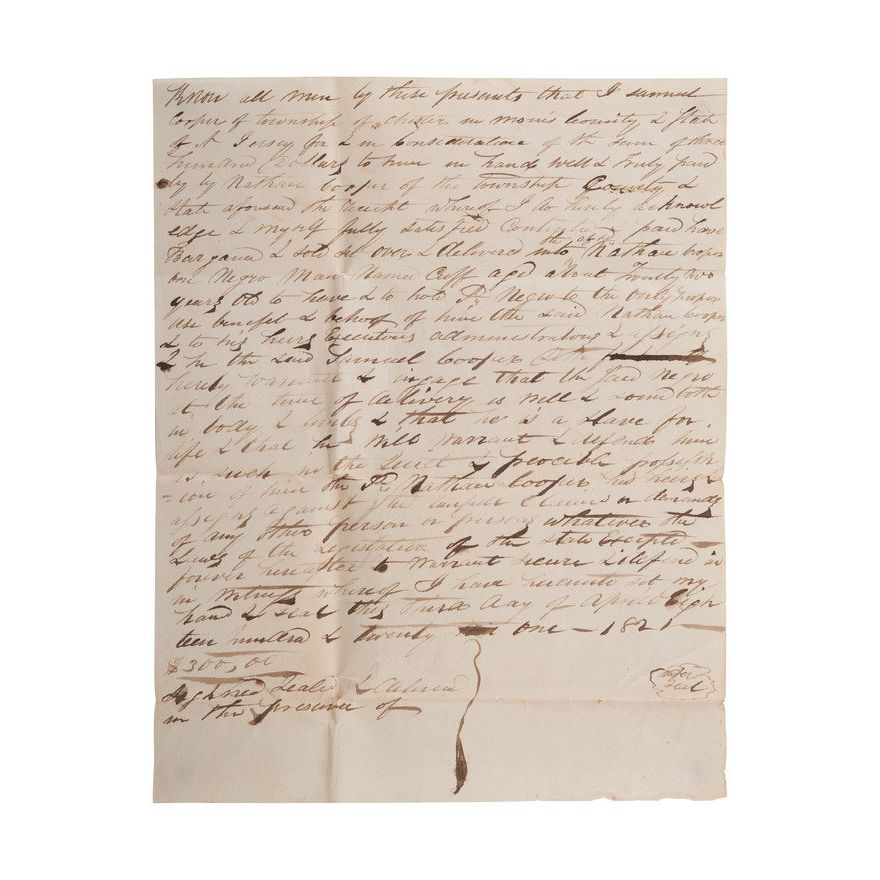 Know all men by these presents that I Samuel
Cooper of township of Chester in Morris County & State
of N Jersey for & in Consideration of the sum of three
hundred Dollars to him in hand well & truly paid
by Nathan Cooper of the township County &
State aforesaid the receipt whereof I do hereby acknowl
edge & myself fully satisfied Contented & paid have
Bargained & sold set over & delivered unto Nathan Cooper
on Negro Man Name Cuff aged about Twenty two
years old to have & to hold Sd Negro to the only proper
use benefit & behoof of him the said Nathan Cooper
& to his heirs Executors administrators & assigns
I he the said Samuel Cooper doth
hereby warrant & engage that the said negro
at the time of delivery is well & sound both
in body & limbs & that he is a slave for
life & that he will warrant & defend him
as such in the quiet & peaceble possess
=ion of him the Sd Nathan Cooper his heirs &
assigns against the Claims or demands
of any other person or persons whatever the
Laws of the Legislature of the state excepted
forever hereafter to warrant secure & defend in
in witness whereof I have hereunto set my
hand & seal this third day of April Eigh
teen hundred & twenty one - 1821
$300,00
Sighned Sealed & Delivered
in the presence of
Seal